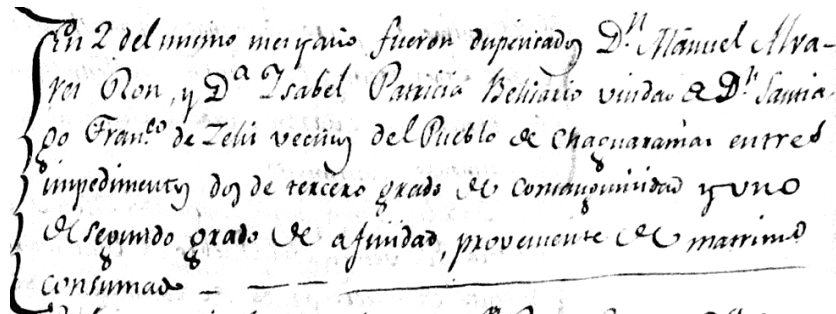 En 2 del mismo mes y año fueron dispensados D.n Manuel Alva-
res Ron, y D.a Ysabel Patricia Belisario viuda de D.n Santia-
go Fran.co de Zelis vecinos del Pueblo de Chaguaramas en tres
impedimentos dos de tercero grado de consanguinidad y uno
de segundo grado de afinidad, proveniente de matrimo
consumado